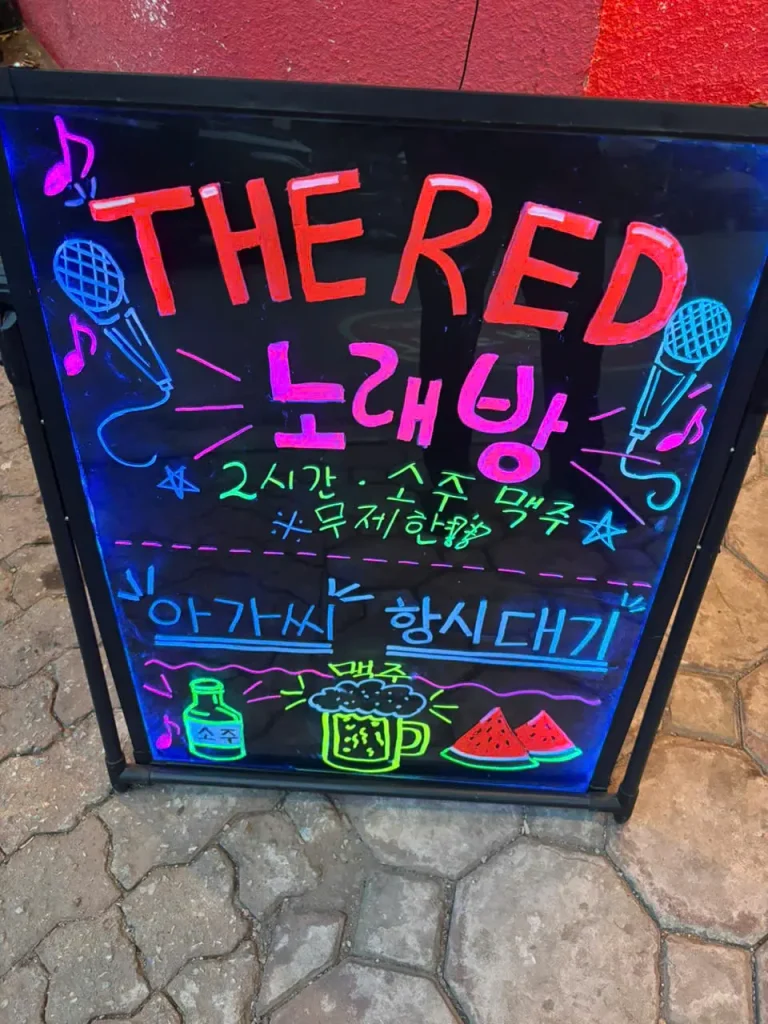 THE RED
노래방
2시간 · 소주 맥주
※무제한
아가씨 항시대기
맥주
소주